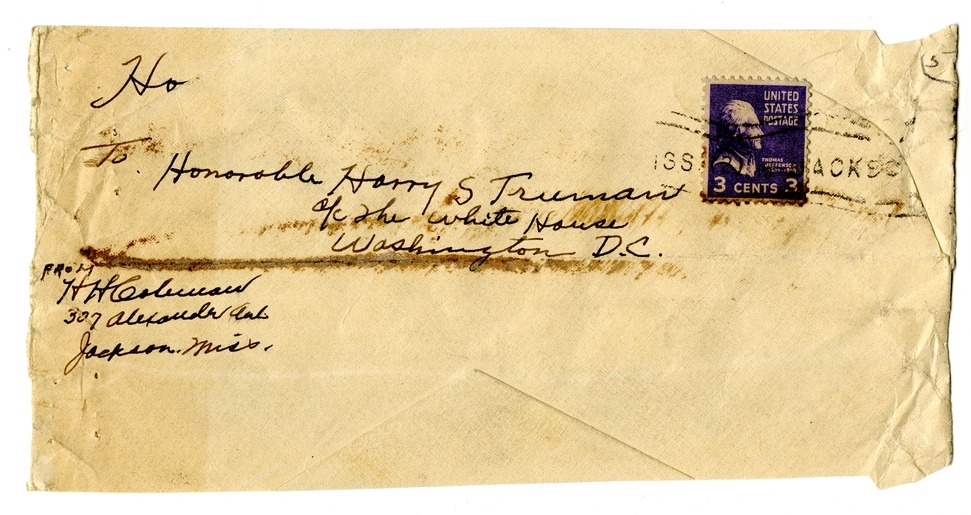 Ho
5
UNITED
STATES
POSTAGE
THOMAS
JEFFERSON
3 CENTS 3
ACKSO
To
Honorable Harry S Truman
c/o The White House
Washington D.C.
FROM
H H Coleman
307 Alexander Ave
Jackson. Miss.